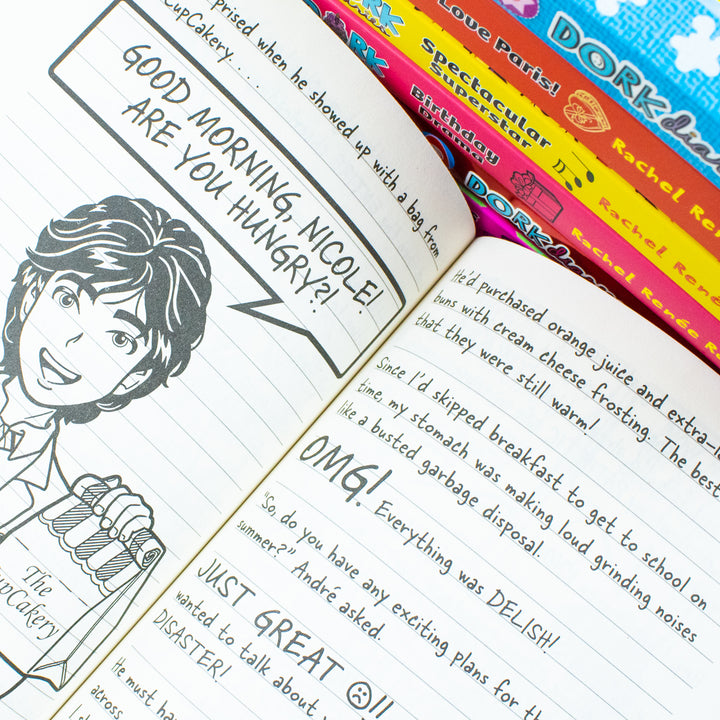 prised when he showed up with a bag from
CupCakery. . . .
GOOD MORNING, NICOLE!
ARE YOU HUNGRY?!
The
CupCakery
He'd purchased orange juice and extra-
buns with cream cheese frosting. The best
that they were still warm!
Since I'd skipped breakfast to get to school on
time, my stomach was making loud grinding noises
like a busted garbage disposal.
OMG! Everything was DELISH!
"So, do you have any exciting plans for th
summer?" André asked.
JUST GREAT ☹!!
wanted to talk about
DISASTER!
He must ha
across
DORK diar
Rachel Ren
Love Paris!
Rachel Rene
Spectacular
Superstar
Rachel Renée R
Birthday
Drama
DORK